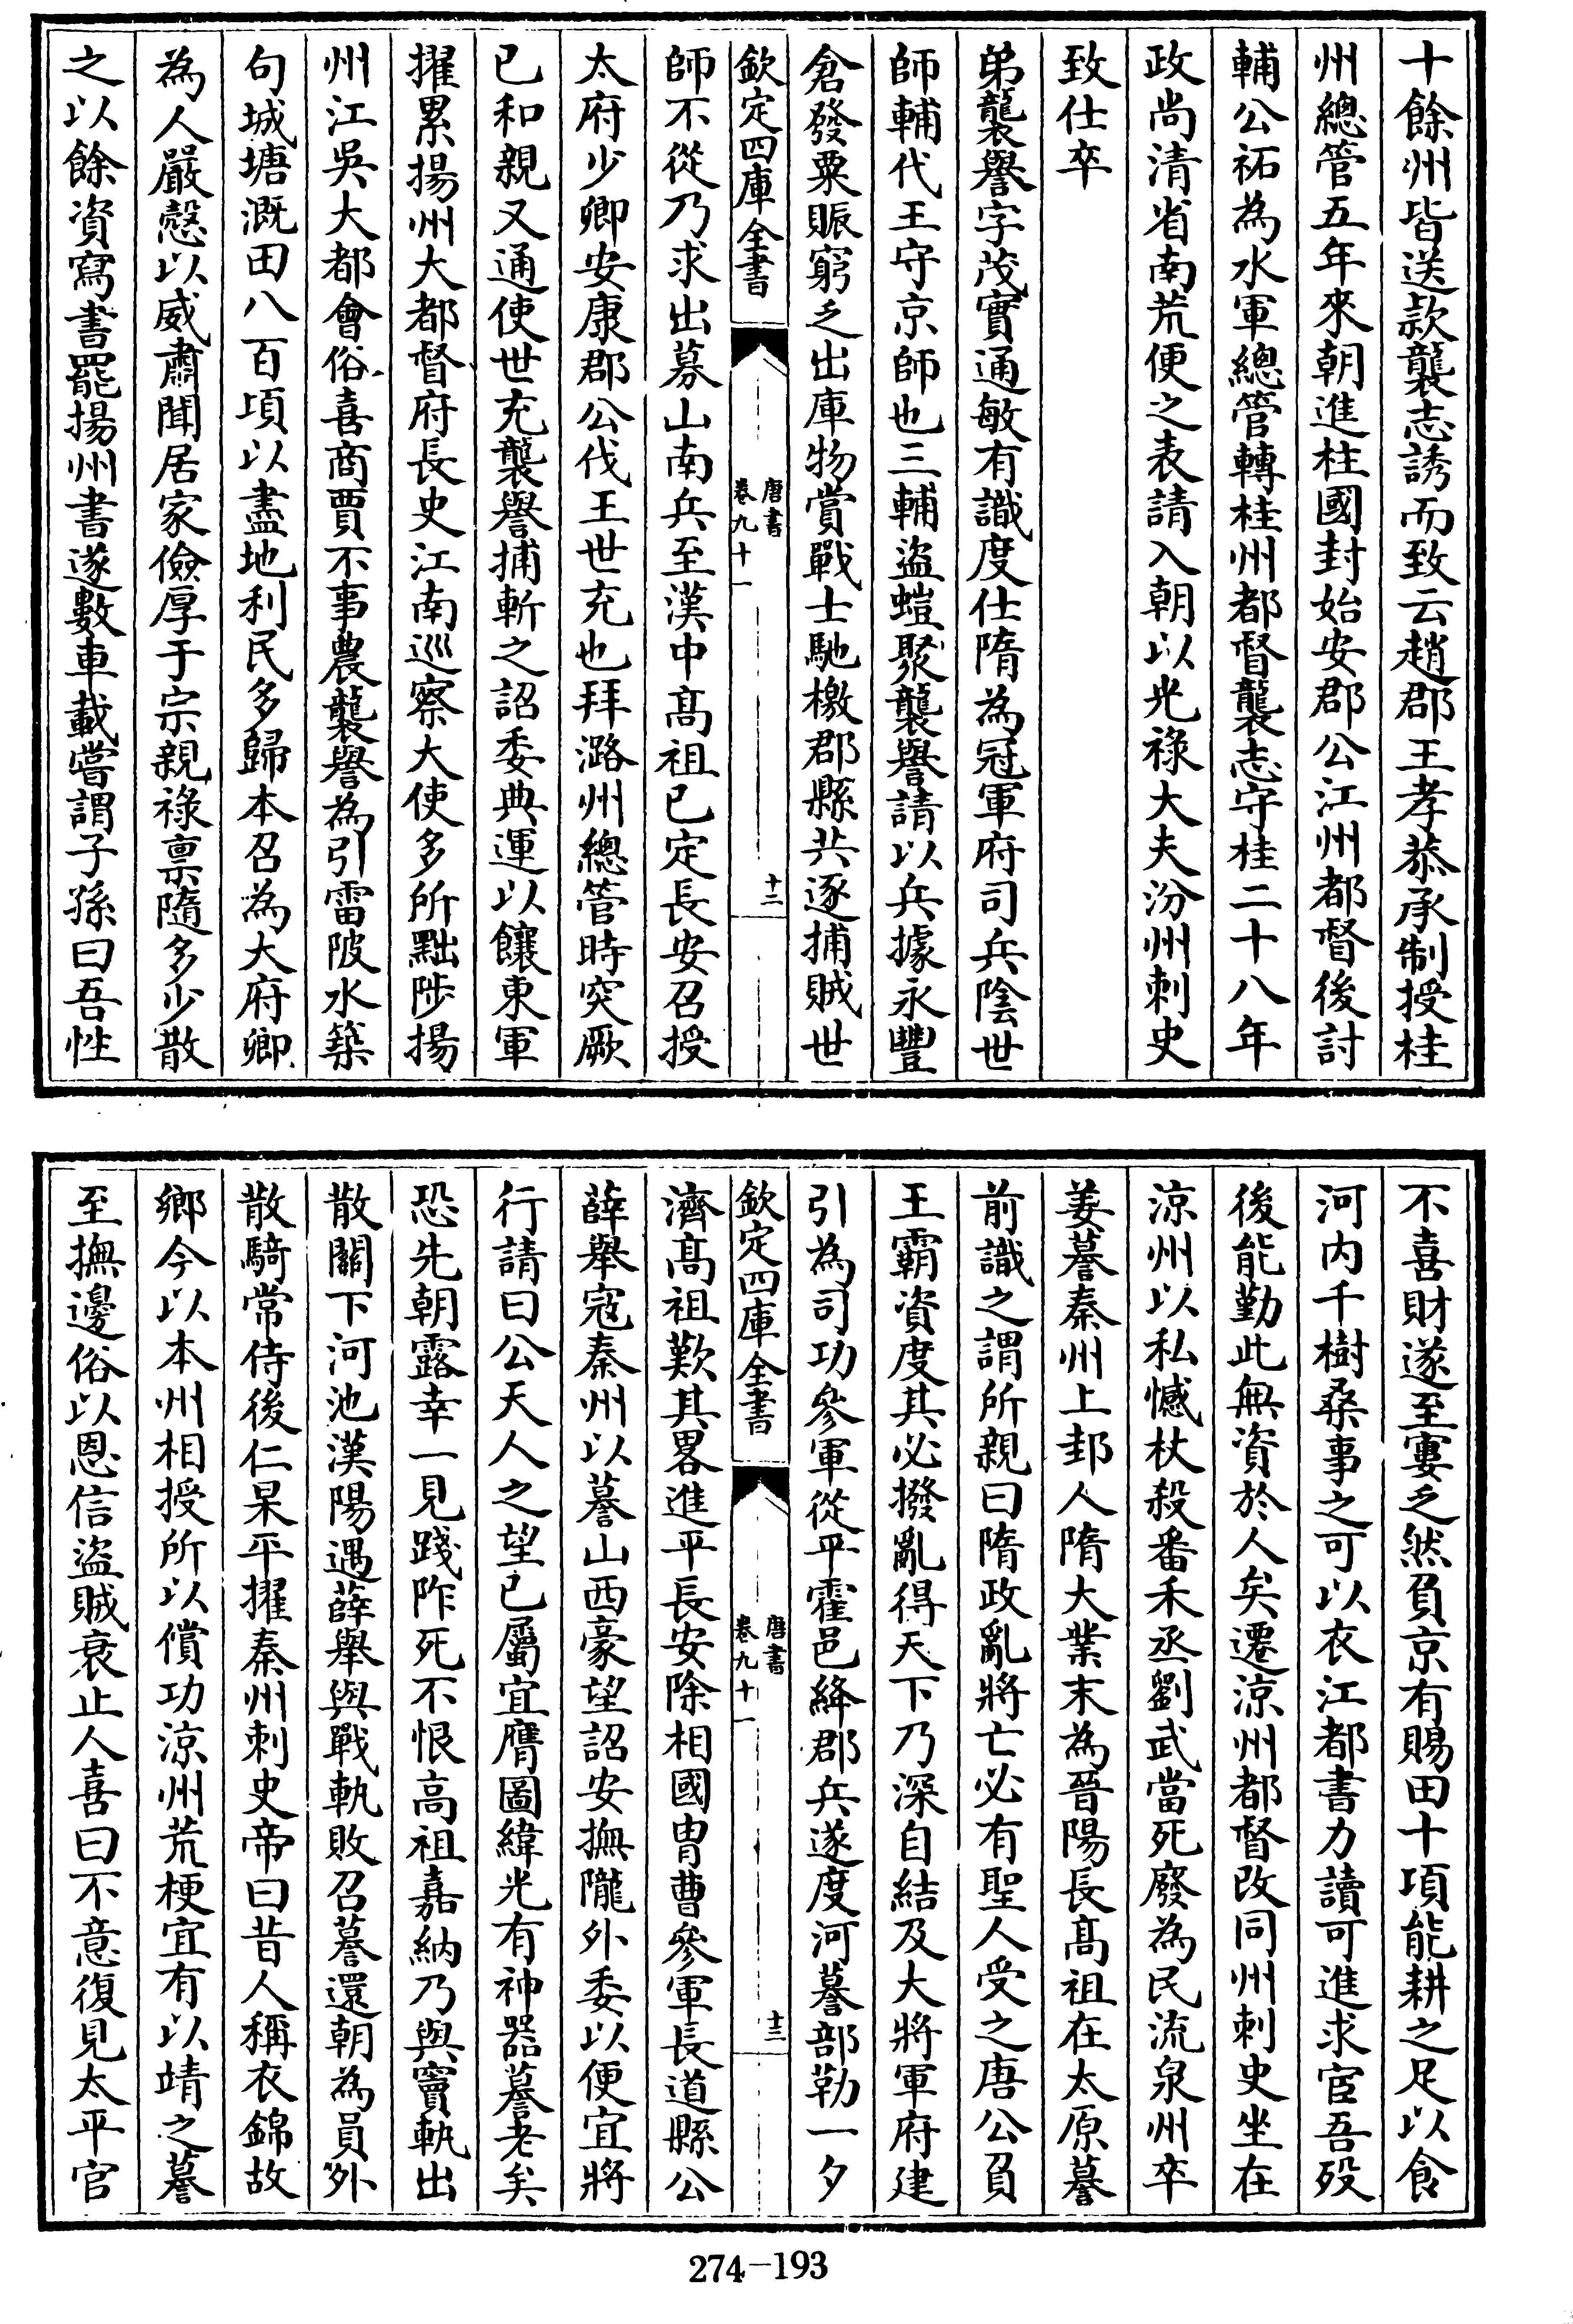 十餘州皆送款襲志誘而致云趙郡王孝恭承制授桂
州總管五年來朝進柱國封始安郡公江州都督後討
輔公祏為水軍總管轉桂州都督襲志守桂二十八年
政尚清省南荒便之表請入朝以光祿大夫汾州刺史
致仕卒
弟襲譽字茂實通敏有識度仕隋為冠軍府司兵陰世
師輔代王守京師也三輔盜螘聚襲譽請以兵據永豐
倉發粟賑窮乏出庫物賞戰士馳檄郡縣共逐捕賊世
欽定四庫全書
唐書
卷九十一
十二
師不從乃求出募山南兵至漢中髙祖已定長安召授
太府少卿安康郡公伐王世充也拜潞州總管時突厥
已和親又通使世充襲譽捕斬之詔委典運以饟東軍
擢累揚州大都督府長史江南巡察大使多所黜陟揚
州江吳大都會俗喜商賈不事農襲譽為引雷陂水築
句城塘溉田八百頃以盡地利民多歸本召為大府卿
為人嚴慤以威肅聞居家儉厚于宗親祿禀隨多少散
之以餘資寫書罷揚州書遂數車載嘗謂子孫曰吾性
不喜財遂至窶乏然負京有賜田十項能耕之足以食
河内千樹桑事之可以衣江都書力讀可進求宦吾歿
後能勤此無資於人矣遷涼州都督改同州刺史坐在
涼州以私憾杖殺番禾丞劉武當死廢為民流泉州卒
姜謩秦州上邽人隋大業末為晉陽長髙祖在太原謩
前識之謂所親曰隋政亂將亡必有聖人受之唐公負
王霸資度其必撥亂得天下乃深自結及大將軍府建
引為司功參軍從平霍邑絳郡兵遂度河謩部勒一夕
欽定四庫全書
唐書
卷九十一
十三
濟髙祖歎其畧進平長安除相國胄曹參軍長道縣公
薛舉寇秦州以謩山西豪望詔安撫隴外委以便宜將
行請曰公天人之望已屬宜膺圖緯光有神器謩老矣
恐先朝露幸一見踐阼死不恨高祖嘉納乃與竇軌出
散關下河池漢陽遇薛舉與戰軌敗召謩還朝為員外
散騎常侍後仁杲平擢秦州刺史帝曰昔人稱衣錦故
鄉今以本州相授所以償功涼州荒梗宜有以靖之謩
至撫邊俗以恩信盜賊衰止人喜曰不意復見太平官
274-193